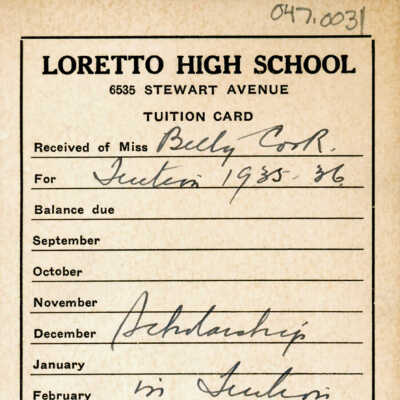 047.0031
LORETTO HIGH SCHOOL
6535 STEWART AVENUE
TUITION CARD
Received of Miss Betty Cook.
For Tuition 1935-36
Balance due
September
October
November
December Scholarship
January
February in Tuition